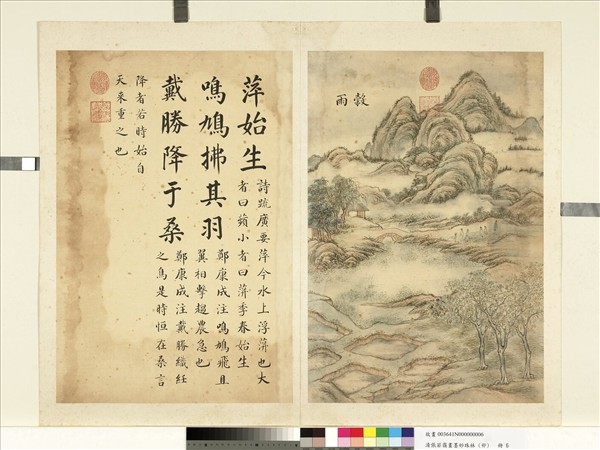 穀雨
萍始生
詩疏廣要萍今水上浮萍也大
者曰蘋小者曰萍季春始生
鳴鳩拂其羽
鄭康成注鳴鳩飛且
翼相擊趨農急也
戴勝降于桑
鄭康成注戴勝織紝
之鳥是時恒在桑言
降者若時始自
天來重之也
故畫 003641N000000006
清張若靄畫墨妙珠林（卯） 冊 6